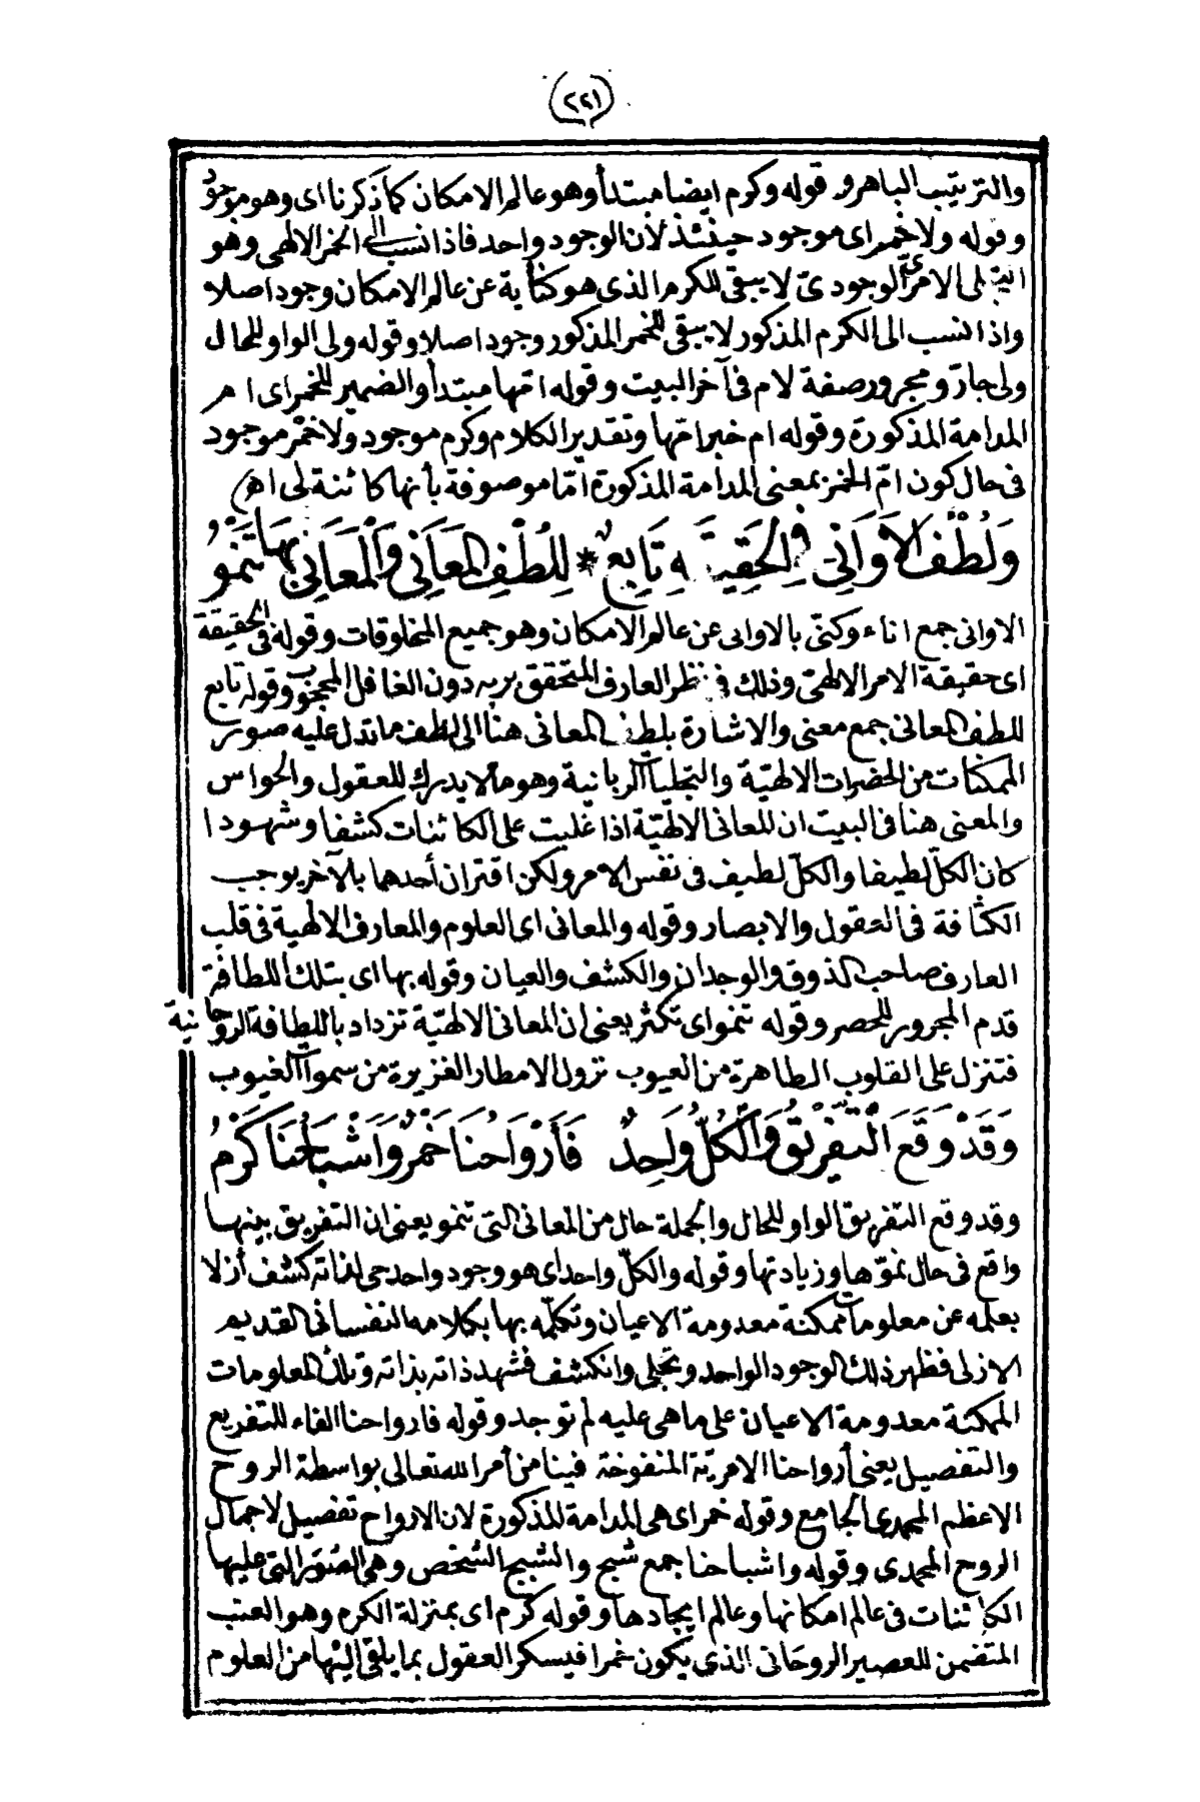 (٢٢١)
والترتيب الباهر و قوله وكرم ايضا مبتدأ وهو عالم الامكان كما ذكرنا اى وهو موجود
وقوله ولا خمر اى موجود حينئذ لان الوجود واحد فاذا نسب الى الخمر الالهى وهو
التجلى الامرى الوجودى لا يبقى للكرم الذى هو كناية عن عالم الامكان وجود اصلا
واذا نسب الى الكرم المذكور لا يبقى للخمر المذكور وجود اصلا وقوله ولى الواو للحال
ولى جار ومجرور صفة لام فى آخر البيت وقوله امّها مبتدأ والضمير للخمر اى ام
المدامة المذكورة وقوله ام خبر امّها وتقدير الكلام وكرم موجود ولا خمر موجود
فى حال كون امّ الخمر بمعنى المدامة المذكورة امّا موصوفة بأنها كائنة لى اه
وَلُطْفُ الأَوَانِى فِى الحَقِيقَةِ تَابِعٌ * لِلُطْفِ المَعَانِى وَالْمَعَانِى بِهَا تَنْمُو
الاوانى جمع اناء وكنّى بالاوانى عن عالم الامكان وهو جميع المخلوقات وقوله فى الحقيقة
اى حقيقة الامر الالهىّ وذلك فى نظر العارف المتحقق بربه دون الغافل المحجوب وقوله تابع
للطف المعانى جمع معنى والاشارة بلطف المعانى هنا الى لطف ما تدل عليه صور
الممكنات من الحضرات الالهيّة والتجليات الربانية وهو ما لا يدرك للعقول والحواس
والمعنى هنا فى البيت ان للمعانى الالهيّة اذا غلبت على الكائنات كشفا وشهودا
كان الكلّ لطيفا والكلّ لطيف فى نفس الامر ولكن اقتران أحدهما بالآخر يوجب
الكثافة فى العقول والابصار وقوله والمعانى اى العلوم والمعارف الالهية فى قلب
العارف صاحب الذوق والوجدان والكشف والعيان وقوله بها اى بتلك اللطافة
قدم المجرور للحصر وقوله تنمو اى تكثر يعنى ان المعانى الالهيّة تزداد باللطافة الروحانية
فتنزل على القلوب الطاهرة من العيوب نزول الامطار الغزيرة من سموات الغيوب
وَقَدْ وَقَعَ التَّفْرِيقُ وَالْكُلُّ وَاحِدٌ فَأَرْوَاحُنَا خَمْرٌ وَأَشْبَاحُنَا كَرْمُ
وقد وقع التفريق الواو للحال والجملة حال من المعانى التى تنمو يعنى ان التفريق بينها
واقع فى حال نموّها وزيادتها وقوله والكلّ واحد اى هو وجود واحد حى لذاته كشف أزلا
بعلمه عن معلومات ممكنة معدومة الاعيان وتكلّمه بها بكلامه النفسانى القديم
الازلى فظهر ذلك الوجود الواحد وتجلى وانكشف فشهد ذاته بذاته وتلك المعلومات
الممكنة معدومة الاعيان على ما هى عليه لم توجد وقوله فارواحنا الفاء للتفريع
والتفصيل يعنى أرواحنا الامريّة المنفوخة فينا من أمر الله تعالى بواسطة الروح
الاعظم المحمدى الجامع وقوله خمر اى هى المدامة المذكورة لان الارواح تفصيل لاجمال
الروح المحمدى وقوله واشباحنا جمع شبح والشبح الشخص وهى الصور التى عليها
الكائنات فى عالم امكانها وعالم ايجادها وقوله كرم اى بمنزلة الكرم وهو العنب
المتضمن للعصير الروحانى الذى يكون خمرا فيسكر العقول بما يلقى اليها من العلوم